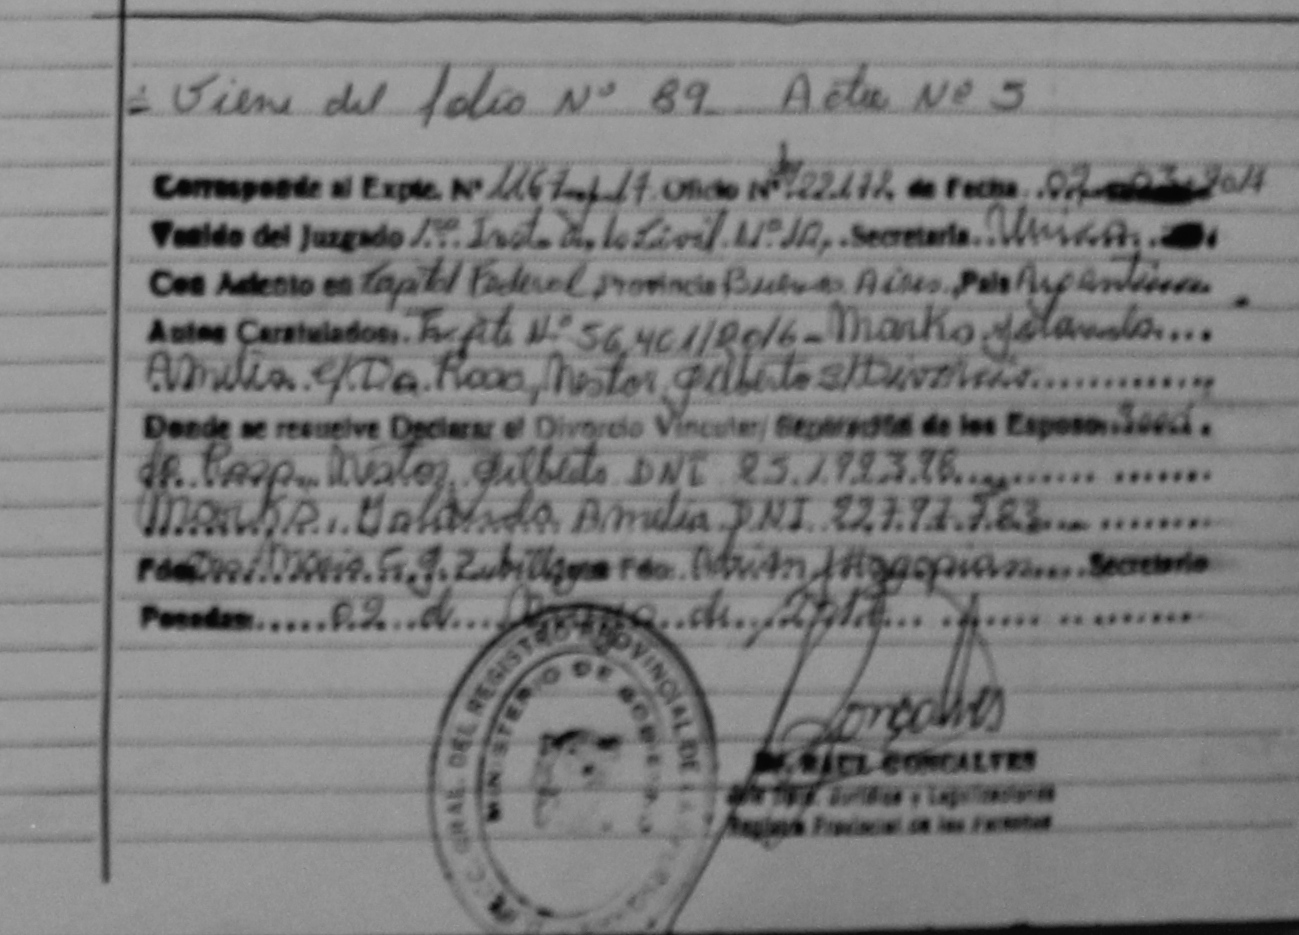 = Viene del folio Nº 89 Acta Nº 5
Corresponde al Expte. Nº 1167 17 Oficio Nº 22172 de Fecha 02 03 2017
Venido del Juzgado 1ra. Inst. de lo Civil Nº 10, Secretaría Unica
Con Asiento en Capital Federal, provincia Buenos Aires, Pais Argentina
Autos Caratulados: Expte Nº 56.401/2016 - Marko Yolanda
Amelia c/ Da Rosa, Nestor Gilberto s/Divorcio
Donde se resuelve Declarar el Divorcio Vincular/ Separación de los Esposos
da Rosa Nestor Gilberto DNI
Marko Yolanda Amelia DNI
Fdo. Maria Fdo: Adrián Hagopian Secretario
Posadas 02 de de 2017
GRAL. DEL REGISTRO PROVINCIAL DE LA
MINISTERIO DE GOBIERNO
Goncalves
Dr. RAUL GONCALVES
Jurídica y Legalizaciones
Registro Provincial de las Personas